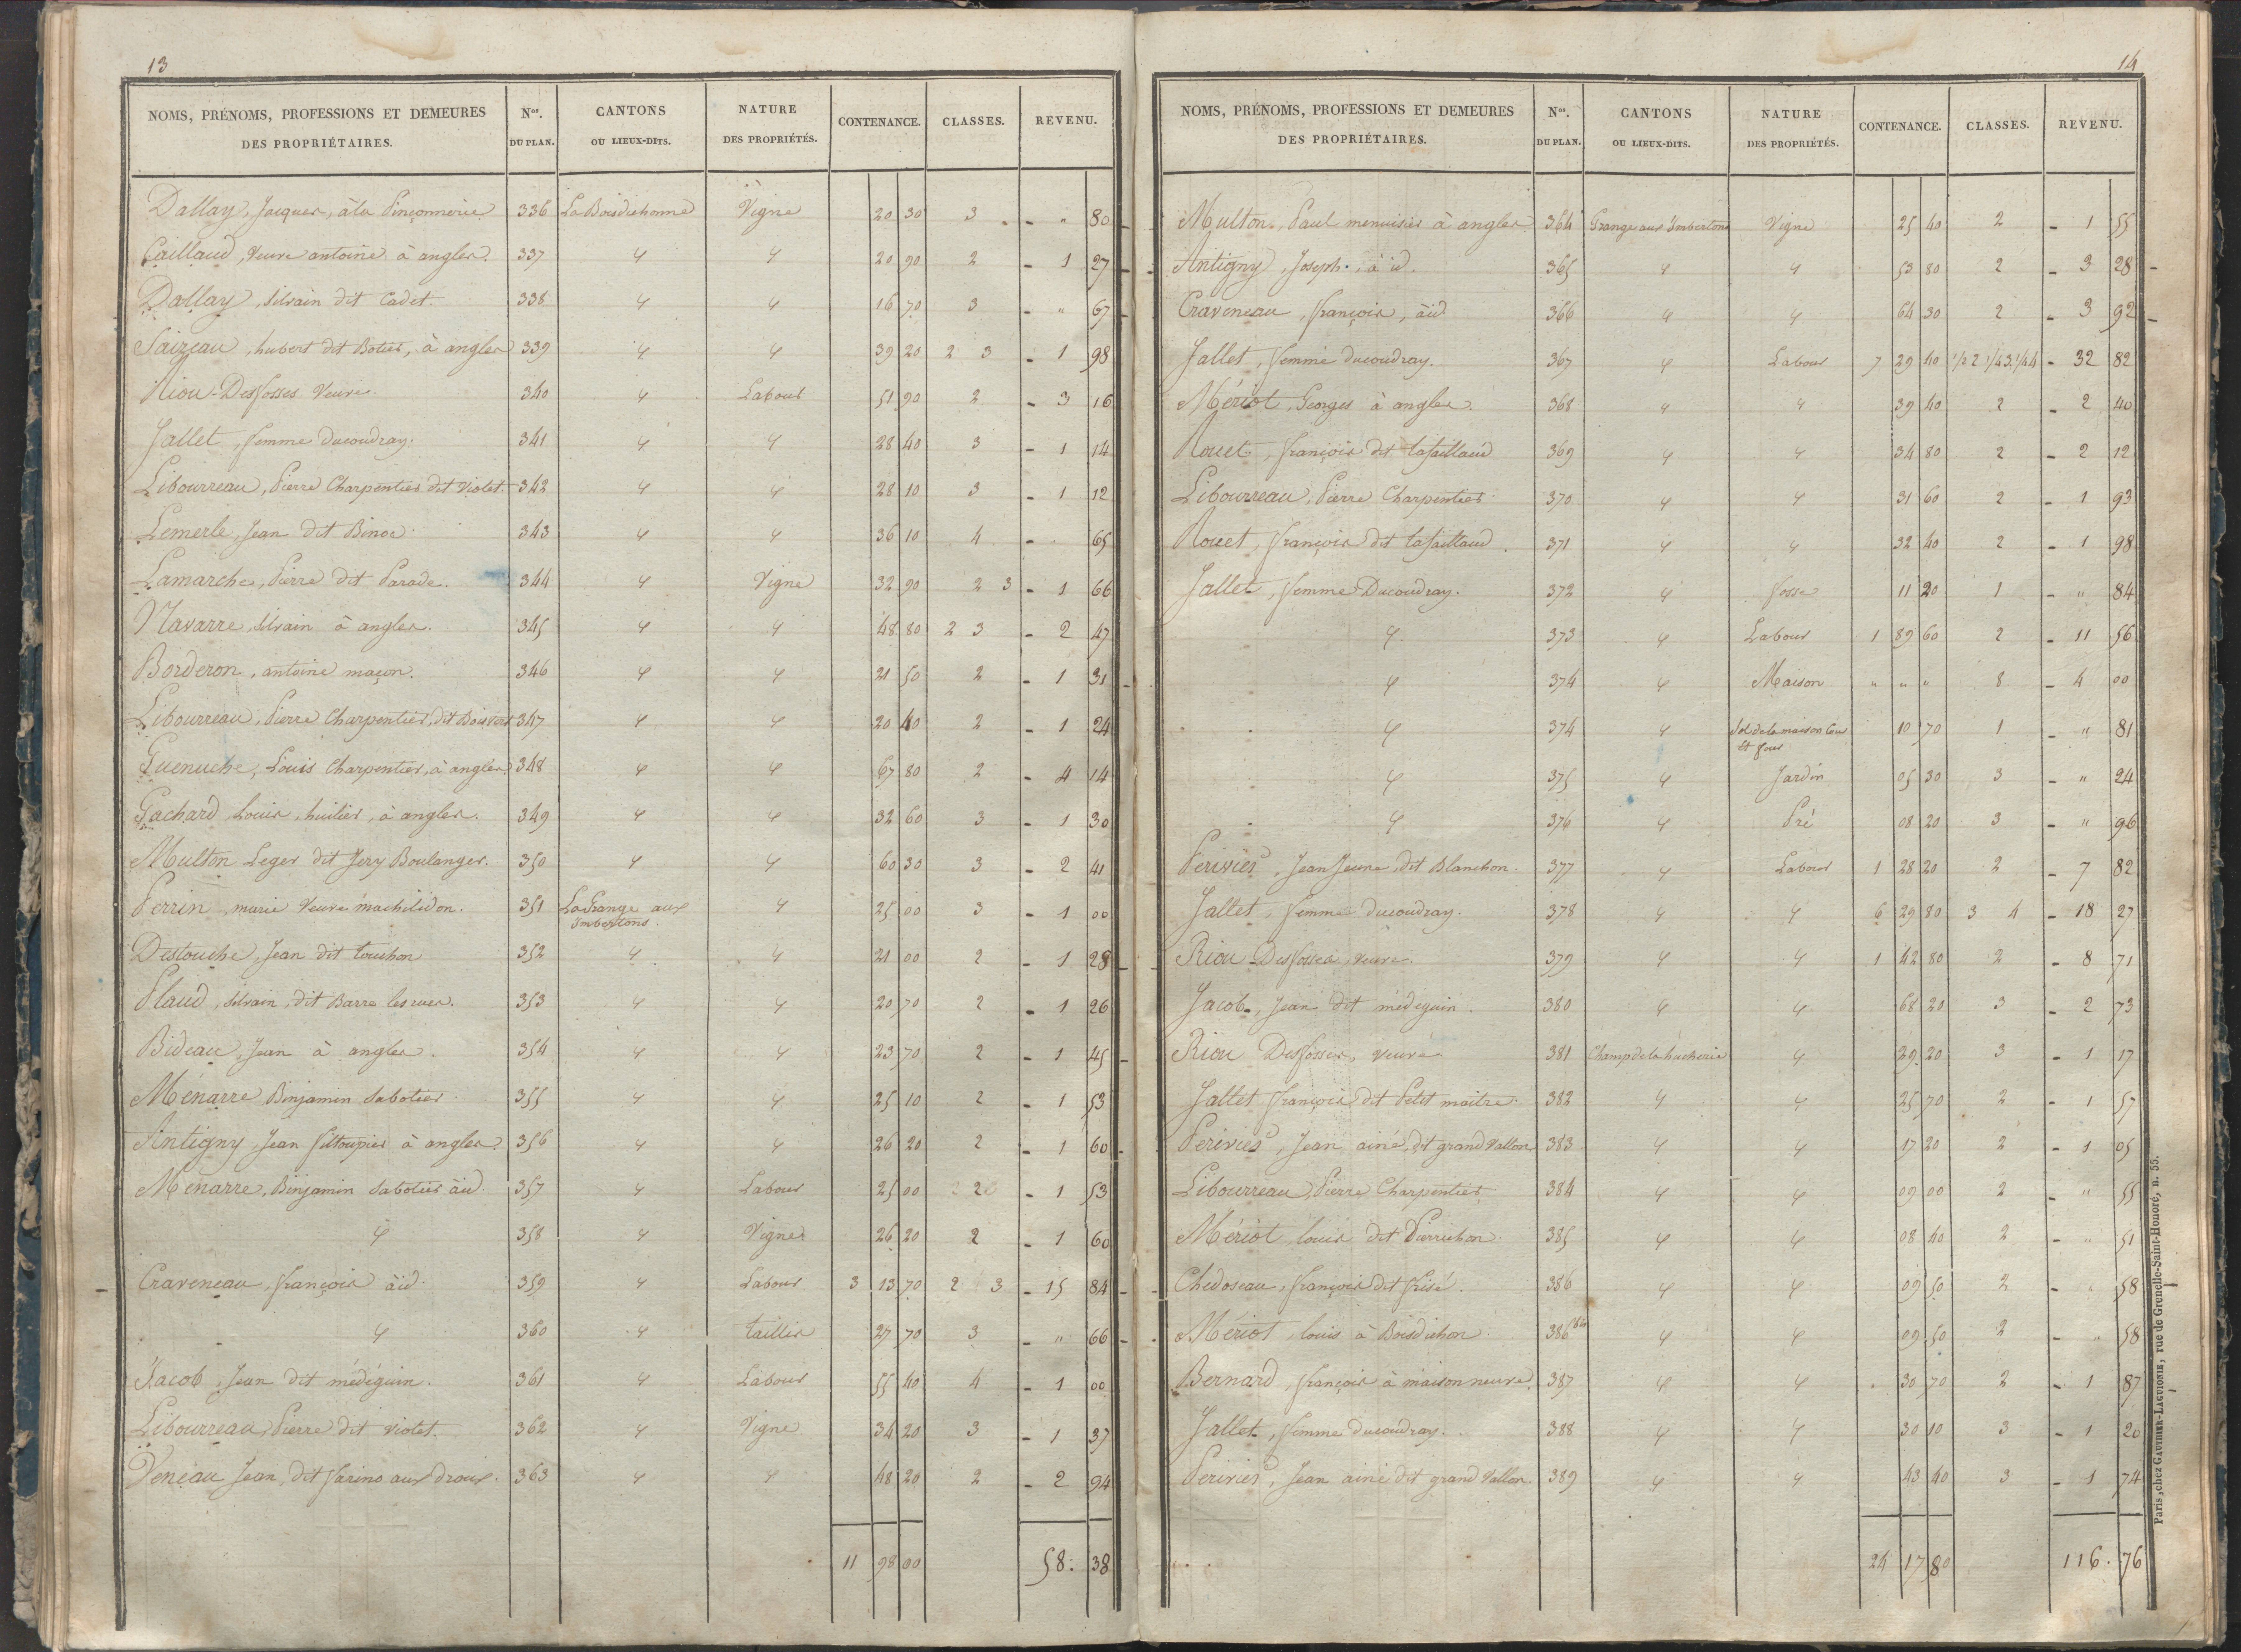 13
NOMS, PRÉNOMS, PROFESSIONS ET DEMEURES DES PROPRIÉTAIRES. Nos. DU PLAN. CANTONS OU LIEUX-DITS. NATURE DES PROPRIÉTÉS. CONTENANCE. CLASSES. REVENU.
Dallay, Jacques, à la Pinçonnerie 336 La Boisdichonne Vigne 20 30 3 - " 80
Caillaud, Veuve antoine à angles. 337 " " 20 90 2 - 1 27
Dallay, Silvain dit Cadet. 338 " " 16 70 3 - " 67
Saizeau, hubert dit Botier, à angles 339 " " 39 20 2 3 - 1 98
Riou-Desfosses Veuve. 340 " Labour 51 90 2 - 3 16
Jallet, femme Ducoudray. 341 " " 28 40 3 - 1 14
Libourreau, Pierre Charpentier dit Violet. 342 " " 28 10 3 - 1 12
Lemerle, Jean dit Binoc 343 " " 36 10 4 - . 65
Lamarche, Pierre dit Parade. 344 " Vigne 32 90 2 3 - 1 66
Navarre, Silvain à angles. 345 " " 48 80 2 3 - 2 47
Borderon, antoine maçon. 346 " " 21 50 2 - 1 31
Libourreau, Pierre Charpentier, dit Boisvert 347 " " 20 40 2 - 1 24
Guenuche, Louis Charpentier, à angles. 348 " " 67 80 2 - 4 14
Gachard, Louis, huilier, à angles. 349 " " 32 60 3 - 1 30
Multon Leger dit Jery Boulanger. 350 " " 60 30 3 - 2 41
Perrin, marie Veuve machilidon. 351 La Grange aux Imbertons. " 25 00 3 - 1 00
Destouche, Jean dit touchon 352 " " 21 00 2 - 1 28
Plaud, Silvain, dit Barre les rues. 353 " " 20 70 2 - 1 26
Bideau, Jean à angles. 354 " " 23 70 2 - 1 45
Ménarre Binjamin Sabotier. 355 " " 25 10 2 - 1 53
Antigny Jean filtoupier à angles. 356 " " 26 20 2 - 1 60
Menarre, Binjamin Sabotier à id. 357 " Labour 25 00 2 - 1 53
" 358 " Vignes 26 20 2 - 1 60
Craveneau, françois à id. 359 " Labour 3 13 70 2 3 - 15 84
" 360 " taillis 27 70 3 - " 66
Jacob, Jean dit médéguin. 361 " Labour 55 40 4 - 1 00
Libourreau, Pierre dit Violet. 362 " Vigne 34 20 3 - 1 37
Veneau Jean, dit farino aux droux. 363 " " 48 20 2 - 2 94
11 98 00 58. 38
14
NOMS, PRÉNOMS, PROFESSIONS ET DEMEURES DES PROPRIÉTAIRES. Nos. DU PLAN. CANTONS OU LIEUX-DITS. NATURE DES PROPRIÉTÉS. CONTENANCE. CLASSES. REVENU.
Multon, Paul menuisier à angles 364 Grange aux Imbertons Vigne 25 40 2 - 1 55
Antigny, Joseph, à id. 365 " " 53 80 2 - 3 28
Craveneau, françois, à id 366 " " 64 30 2 - 3 92
Jallet, femme ducoudray. 367 " Labour 7 29 40 1/2 2 1/4 3 1/4 4 - 32 82
Mériot, Georges à angles. 368 " " 39 40 2 - 2 40
Rouet, françois dit lafaillaud 369 " " 34 80 2 - 2 12
Libourreau, Pierre Charpentier 370 " " 31 60 2 - 1 93
Rouet, françois dit lafaillaud. 371 " " 32 40 2 - 1 98
Jallet, femme Ducoudray. 372 " fosse 11 20 1 - " 84
" 373 " Labour 1 89 60 2 - 11 56
" 374 " Maison " " " 8 - 4 00
" 374 " Sol de la maison Cour et four 10 70 1 - " 81
" 375 " Jardin 05 30 3 - " 24
" 376 " Pré 08 20 3 - " 96
Perivier, Jean Jeune, dit Blanchon. 377 " Labour 1 28 20 2 - 7 82
Jallet, femme ducoudray. 378 " " 6 29 80 3 4 - 18 27
Riou-Desfosses, Veuve. 379 " " 1 42 80 2 - 8 71
Jacob, Jean dit médéguin. 380 " " 68 20 3 - 2 73
Riou Desfosses, Veuve 381 Champ de la hucherie " 29 20 3 - 1 17
Jallet françois dit Petit maitre. 382 " " 25 70 2 - 1 57
Perivier, Jean ainé, dit grand Vallon 383 " " 17 20 2 - 1 05
Libourreau, Pierre Charpentier 384 " " 09 00 2 - " 55
Mériot, louis dit Pierrichon. 385 " " 08 40 2 - " 51
Chedoseau, françois dit frisé. 386 " " 09 50 2 - " 58
Mériot, louis à Boisdichon 386 bis " " 09 50 2 - " 58
Bernard, françois à maison neuve. 387 " " 30 70 2 - 1 87
Jallet, femme ducoudray. 388 " " 30 10 3 - 1 20
Perivier, Jean ainé dit grand Vallon. 389 " " 43 40 3 - 1 74
24 17 80 116. 76
Paris, chez GAVTHIER-LAGUIONIE, rue de Grenelle-Saint-Honoré, n. 55.